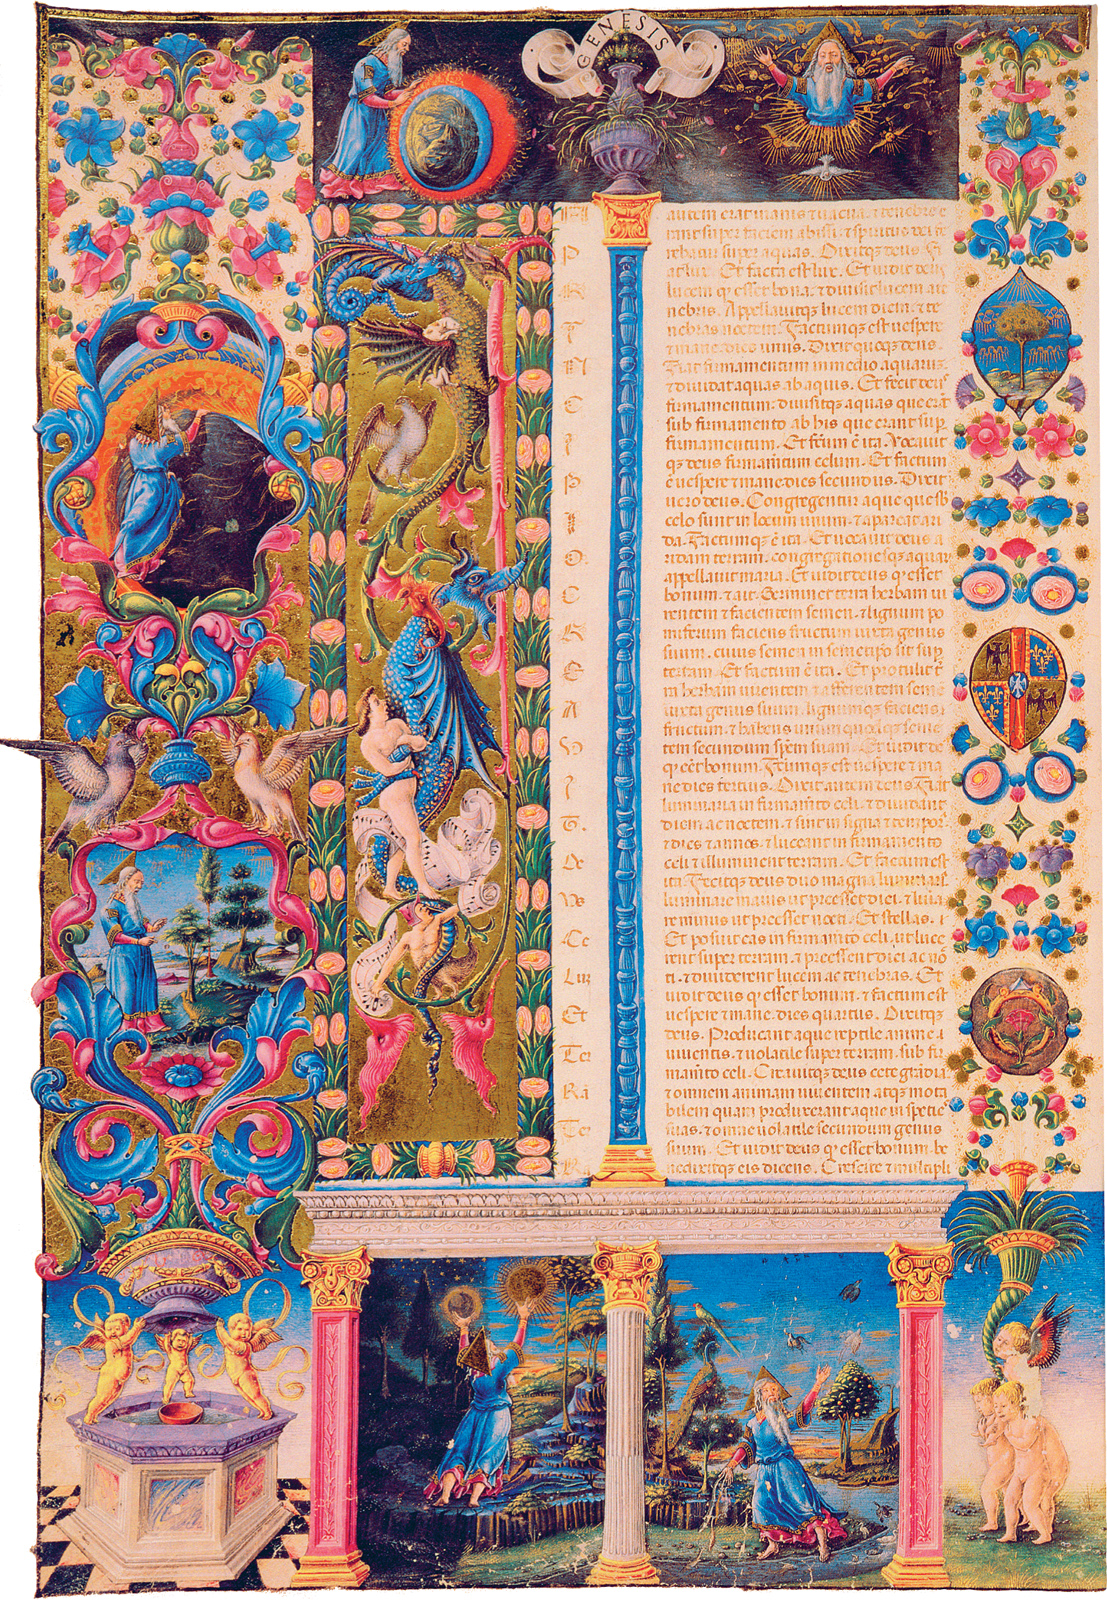 GENESIS
P
R
I
N
C
I
P
I
O
C
R
E
A
V
I
T.
De
Vs
Ce
Luɜ
Et
Ter
Ra
Ter
Ra
autem erat inanis ⁊ uacua. ⁊ tenebre e
rant super faciem abissi. ⁊ spiritus dei fe
rebatur super aquas. Dixitqꝫ deus. Fi
at lux. Et facta est lux. Et uidit deus
lucem ꝙ esset bona. ⁊ diuisit lucem a te
nebris. Appellauitqꝫ lucem diem. ⁊ te
nebras noctem. Factumqꝫ est uespere
⁊ mane. dies unus. Dixit quoqꝫ deus.
Fiat firmamentum in medio aquarum.
⁊ diuidat aquas ab aquis. Et fecit deus
firmamentum. diuisitqꝫ aquas que erāt
sub firmamento ab his que erant sup
firmamentum. Et factū ē ita. Vocauit
qꝫ deus firmamētum celum. Et factum
ē uespere ⁊ mane. dies secundus. Dixit
uero deus. Congregentur aque que sub
celo sunt in locum unum. ⁊ apareat ari
da. Factumqꝫ ē ita. Et uocauit deus a
ridam terram. congregationesqꝫ aquarū
appellauit maria. Et uidit deus ꝙ esset
bonum. ⁊ ait. Germinet terra herbam ui
rentem ⁊ facientem semen. ⁊ lignum po
miferum faciens fructum iuxta genus
suum. cuius semen in semetipso sit sup
terram. Et factum ē ita. Et protulit t̄
ra herbam uirentem ⁊ afferentem semē
iuxta genus suum. lignumqꝫ faciens
fructum. ⁊ habens unum quodqꝫ semē
tem secundum spēm suam. Et uidit de
ꝙ eēt bonum. Factumqꝫ est uespere ⁊ ma
ne dies tertius. Dixit autem deus. Fiāt
luminaria in firmamēto celi. ⁊ diuidant
diem ac noctem. ⁊ sint in signa ⁊ tempora.
⁊ dies ⁊ annos. ⁊ luceant in firmamento
celi ⁊ illuminent terram. Et factum est
ita. Fecitqꝫ deus duo magna luminaria.
luminare maius ut preesset diei. ⁊ lumīa
re minus ut preesset nocti. Et stellas.
Et posuit eas in firmamēto celi. ut luce
rent super terram. ⁊ preessent diei ac noc
ti. ⁊ diuiderent lucem ac tenebras. Et
uidit deus ꝙ esset bonum. ⁊ factum est
uespere ⁊ mane. dies quartus. Dixitqꝫ
deus. Producant aque reptile anime ui
uentis. ⁊ uolatile super terram. sub fir
mamēto celi. Creauitqꝫ deus cete grādia.
⁊ omnem animam uiuentem atqꝫ mota
bilem quam produxerant aque in specie
suas. ⁊ omne uolatile secundum genus
suum. Et uidit deus ꝙ esset bonum. be
nedixitqꝫ eis dicens. Crescite ⁊ multipli